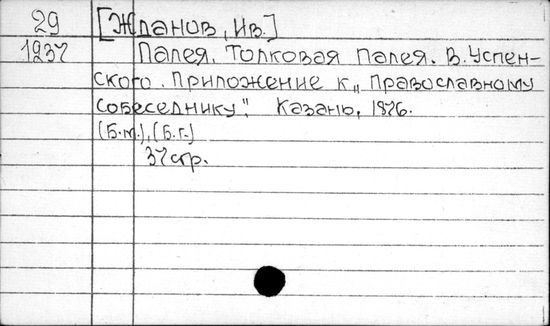 29 [Жданов, Ив.]
1937 Палея. Толковая Палея. В. Успен-
ского. Приложение к „Православному
Собеседнику". Казань, 1876.
(Б.м.), (Б.г.)
37 стр.